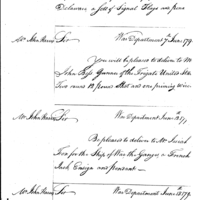 Delaware a Sett of Signal Flags and pen
Mr John Harris Sir War Department 7th June 179
You will be pleased to deliver to Mr
John Ross Gunner of the Frigate United Sta
two rams 12 pound Shot and one priming wire
Mr John Harris Sir War Department June
Be pleased to deliver to Mr Josiah
Fox for the Ship of War the Ganges a French
Jack Ensign and pendant
Mr John Harris Sir War Department June 179